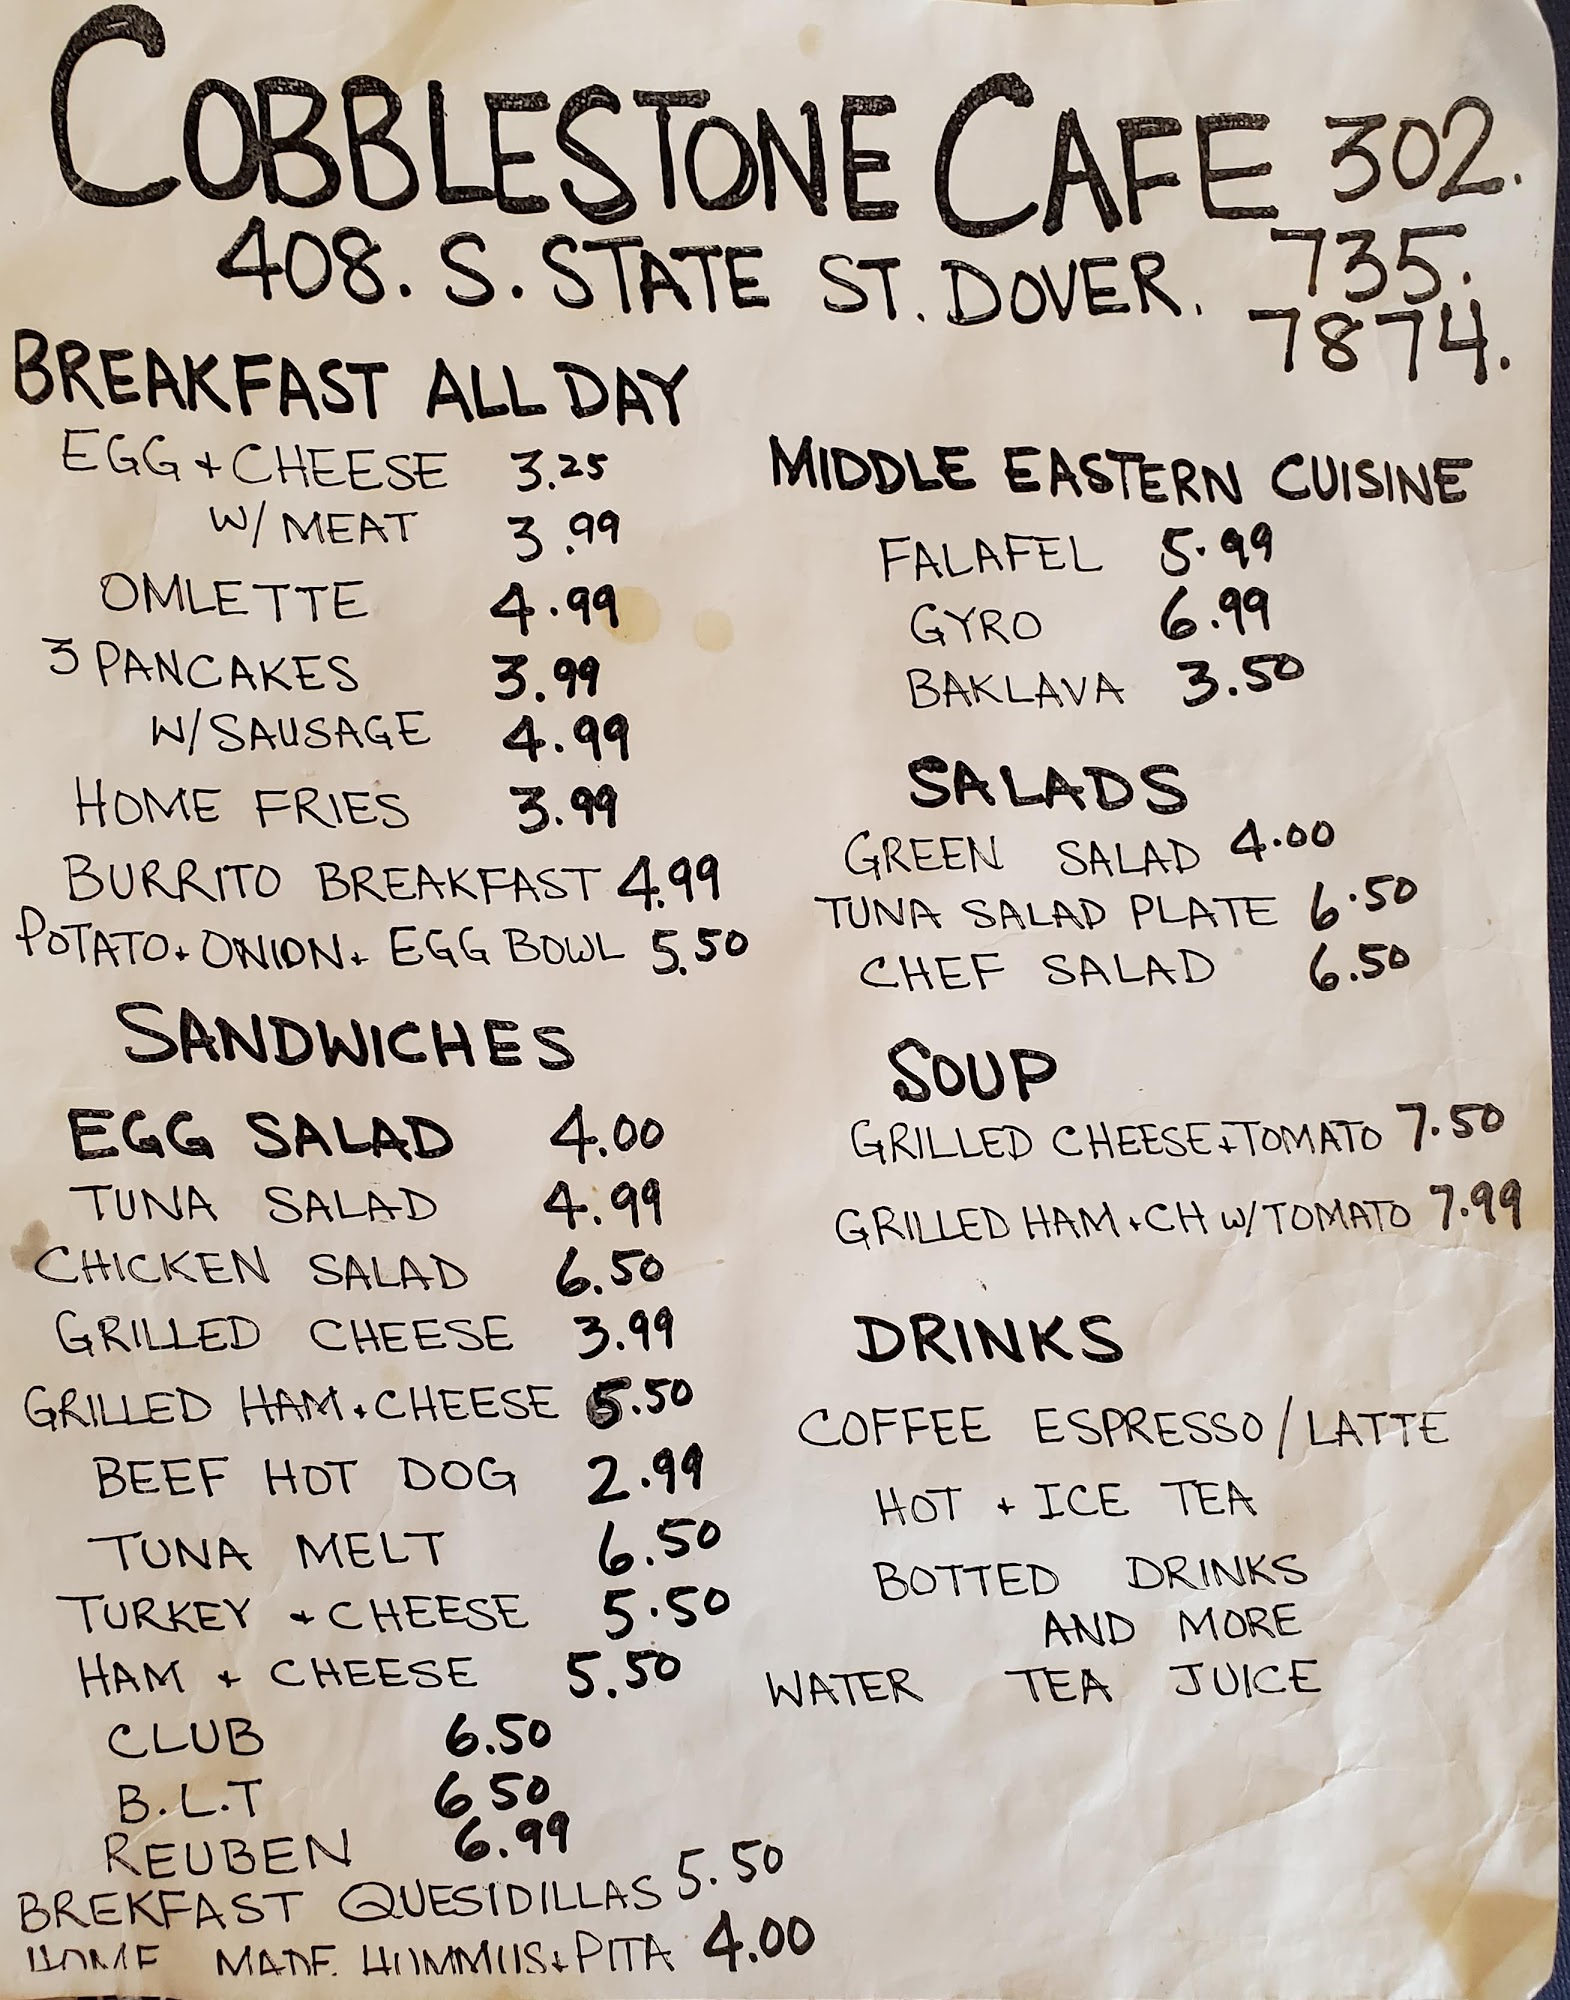 COBBLESTONE CAFE 302.
408. S. STATE ST. DOVER. 735.
7874.
BREAKFAST ALL DAY
EGG + CHEESE 3.25
W/ MEAT 3.99
OMLETTE 4.99
3 PANCAKES 3.99
W/SAUSAGE 4.99
HOME FRIES 3.99
BURRITO BREAKFAST 4.99
POTATO + ONION + EGG BOWL 5.50
SANDWICHES
EGG SALAD 4.00
TUNA SALAD 4.99
CHICKEN SALAD 6.50
GRILLED CHEESE 3.99
GRILLED HAM + CHEESE 5.50
BEEF HOT DOG 2.99
TUNA MELT 6.50
TURKEY + CHEESE 5.50
HAM + CHEESE 5.50
CLUB 6.50
B.L.T 6 50
REUBEN 6.99
BREKFAST QUESIDILLAS 5.50
HOME MADE HUMMUS + PITA 4.00
MIDDLE EASTERN CUISINE
FALAFEL 5.99
GYRO 6.99
BAKLAVA 3.50
SALADS
GREEN SALAD 4.00
TUNA SALAD PLATE 6.50
CHEF SALAD 6.50
SOUP
GRILLED CHEESE + TOMATO 7.50
GRILLED HAM + CH W/TOMATO 7.99
DRINKS
COFFEE ESPRESSO/LATTE
HOT + ICE TEA
BOTTED DRINKS
AND MORE
WATER TEA JUICE